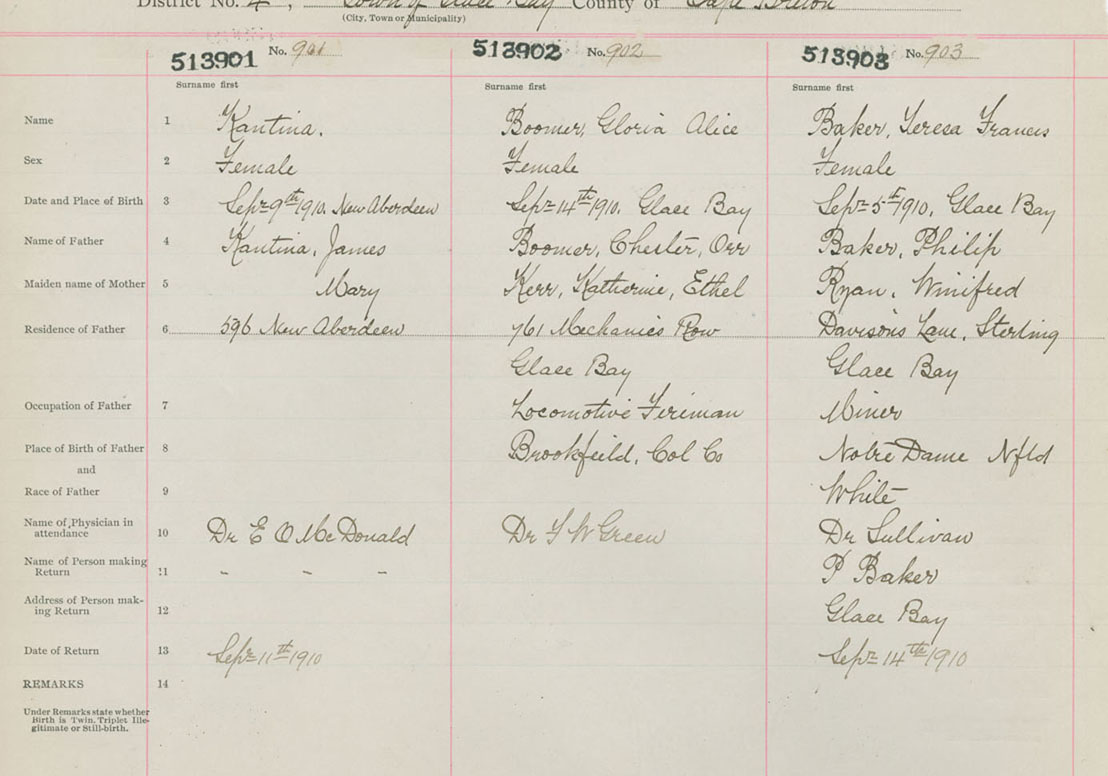 District No. 4, Town of Glace Bay County of Cape Breton
(City, Town or Municipality)
513901 No. 901 513902 No. 902 513903 No. 903
Surname first Surname first Surname first
Name 1 Kantina. Boomer, Gloria Alice Baker, Teresa Francis
Sex 2 Female Female Female
Date and Place of Birth 3 Sept 9th 1910. New Aberdeen Sept 14th 1910. Glace Bay Sept 5th 1910, Glace Bay
Name of Father 4 Kantina, James Boomer, Chester, Orr Baker, Philip
Maiden name of Mother 5 Mary Kerr, Katherine, Ethel Ryan, Winifred
Residence of Father 6 596 New Aberdeen 761 Mechanics Row Davisons Lane, Sterling
Glace Bay Glace Bay
Occupation of Father 7 Locomotive Fireman Miner
Place of Birth of Father 8 Brookfield, Col Co Notre Dame Nfld
and
Race of Father 9 White
Name of Physician in
attendance 10 Dr E O McDonald Dr F W Green Dr Sullivan
Name of Person making
Return 11 - - - P Baker
Address of Person mak-
ing Return 12 Glace Bay
Date of Return 13 Sept 11th 1910 Sept 14th 1910
REMARKS 14
Under Remarks state whether
Birth is Twin, Triplet Ille-
gitimate or Still-birth.